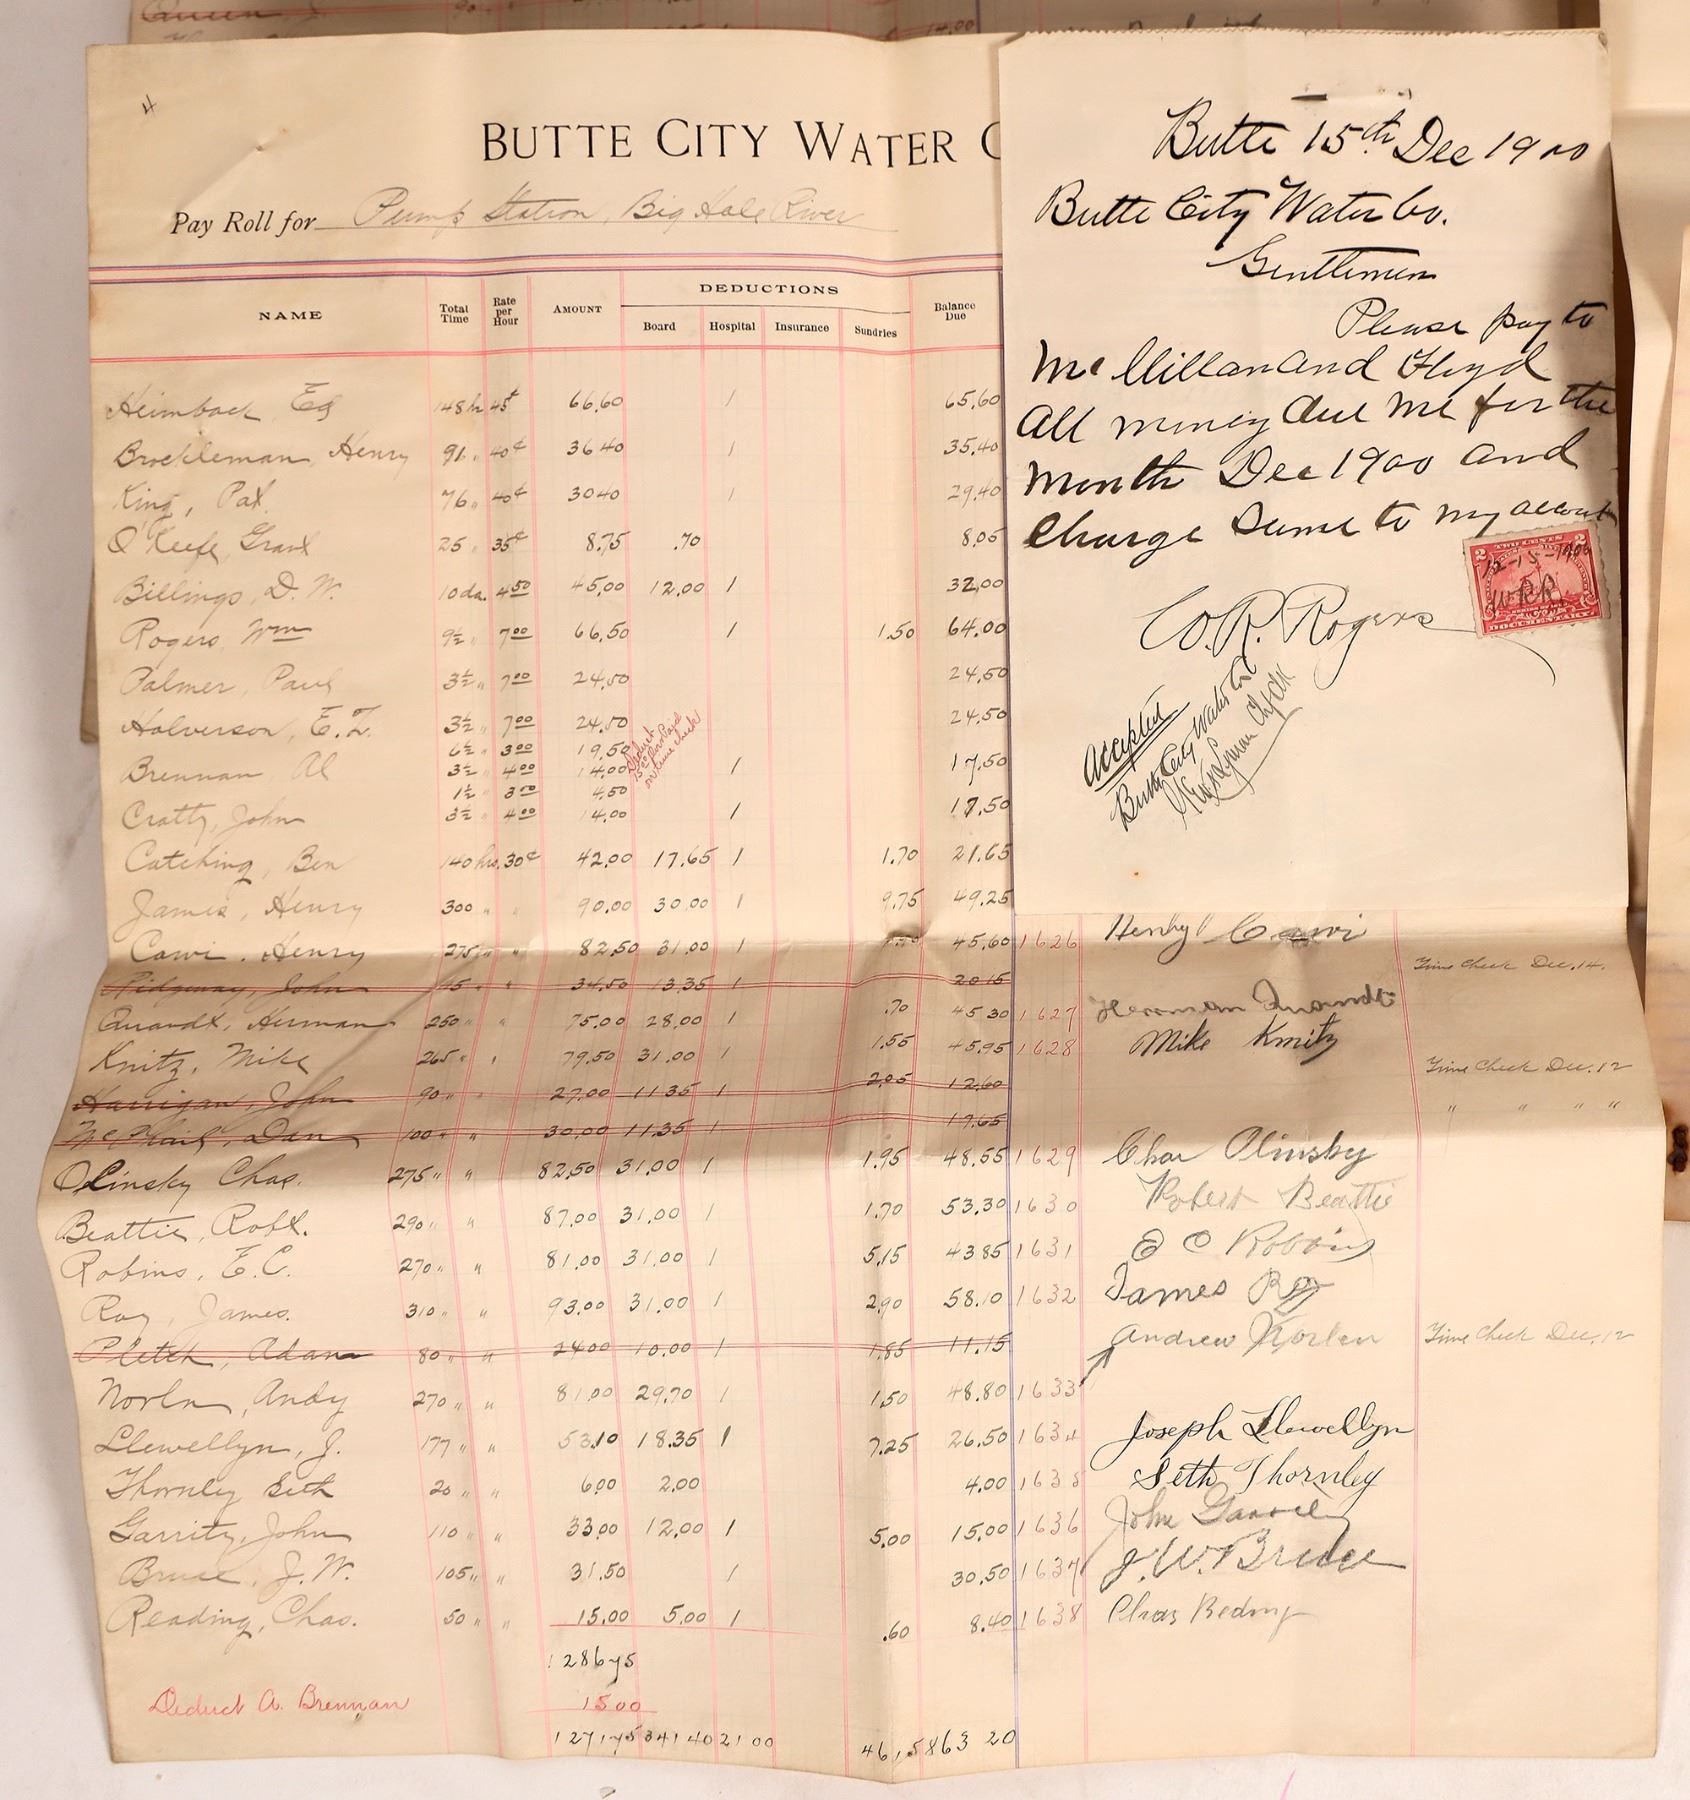 4
BUTTE CITY WATER C
Pay Roll for Pump Station, Big Hole River
NAME Total Time Rate per Hour AMOUNT DEDUCTIONS Board Hospital Insurance Sundries Balance Due
Heimback Ed 148 hr 45¢ 66.60 1 65.60
Brockleman, Henry 91 " 40¢ 36 40 1 35.40
King, Pat. 76 " 40¢ 30 40 1 29.40
O'Keefe, Grant 25 " 35¢ 8.75 .70 8.05
Billings, D. W. 10 da. 4 50 45.00 12.00 1 32.00
Rogers, Wm 9½ " 7 00 66.50 1 1.50 64.00
Palmer, Paul 3½ " 7 00 24.50 24.50
Halverson, E. L. 3½ " 7 00 24.50 24.50
6½ " 3 00 19.50
Brennan, Al 3½ " 4 00 14.00 1 17.50
Deduct 15.00 on time check
1½ " 3 00 4.50
Cratty, John 3½ " 4 00 14.00 1 17.50
Catching, Ben 140 hrs. 30¢ 42.00 17.65 1 1.70 21.65
James, Henry 300 " " 90.00 30.00 1 9.75 49.25
Cawi, Henry 275 " " 82.50 31.00 1 45.60 1626 Henry Cawi
Ridgway, John " " 34.50 13.35 1 20 15 Time Check Dec. 14.
Quandt, Herman 250 " " 75.00 28.00 1 .70 45 30 1627 Herman Quandt
Knitz, Mike 265 " " 79.50 31.00 1 1.55 45.95 1628 Mike Knitz
Harrigan, John 90 " " 27.00 11 35 1 2.05 12.60 Time Check Dec. 12
McPhail, Dan 100 " " 30.00 11.35 1 17.65 " " " "
Olinsky Chas. 275 " " 82.50 31.00 1 1.95 48.55 1629 Chas Olinsby
Beattie, Robt. 290 " " 87.00 31.00 1 1.70 53.30 1630 Robert Beattie
Robins, E. C. 270 " " 81.00 31.00 1 5.15 43 85 1631 E C Robbins
Roy, James. 310 " " 93.00 31.00 1 2.90 58.10 1632 James Roy
Pletch, Adam 80 " " 24 00 10.00 1 1.85 11.15 Andrew Norlen Time Check Dec. 12
Norln, Andy 270 " " 81.00 29.70 1 1.50 48.80 1633
Llewellyn, J. 177 " " 53.10 18.35 1 7.25 26.50 1634 Joseph Llewellyn
Thornley Seth 20 " " 6.00 2.00 4.00 1635 Seth Thornley
Garrity, John 110 " " 33.00 12.00 1 5.00 15.00 1636 John
Bruce, J. W. 105 " " 31.50 1 30.50 1637 J. W. Bruce
Reading, Chas. 50 " " 15.00 5.00 1 .60 8.40 1638 Chas Reding
1286 75
Deduct A. Brennan 15 00
1271 75 341 40 21 00 46.15 863 20
Butte 15th Dec 1900
Butte City Water Co.
Gentlemen
Please pay to
McMillan and Floyd
all money due me for the
Month Dec 1900 and
charge same to my account
W. R. Rogers
TWO CENTS
2 2
12-15-1900
W.R.R.
SERIES OF 1898
DOCUMENTARY
Accepted
Butte City Water Co.
Lyman Clerk